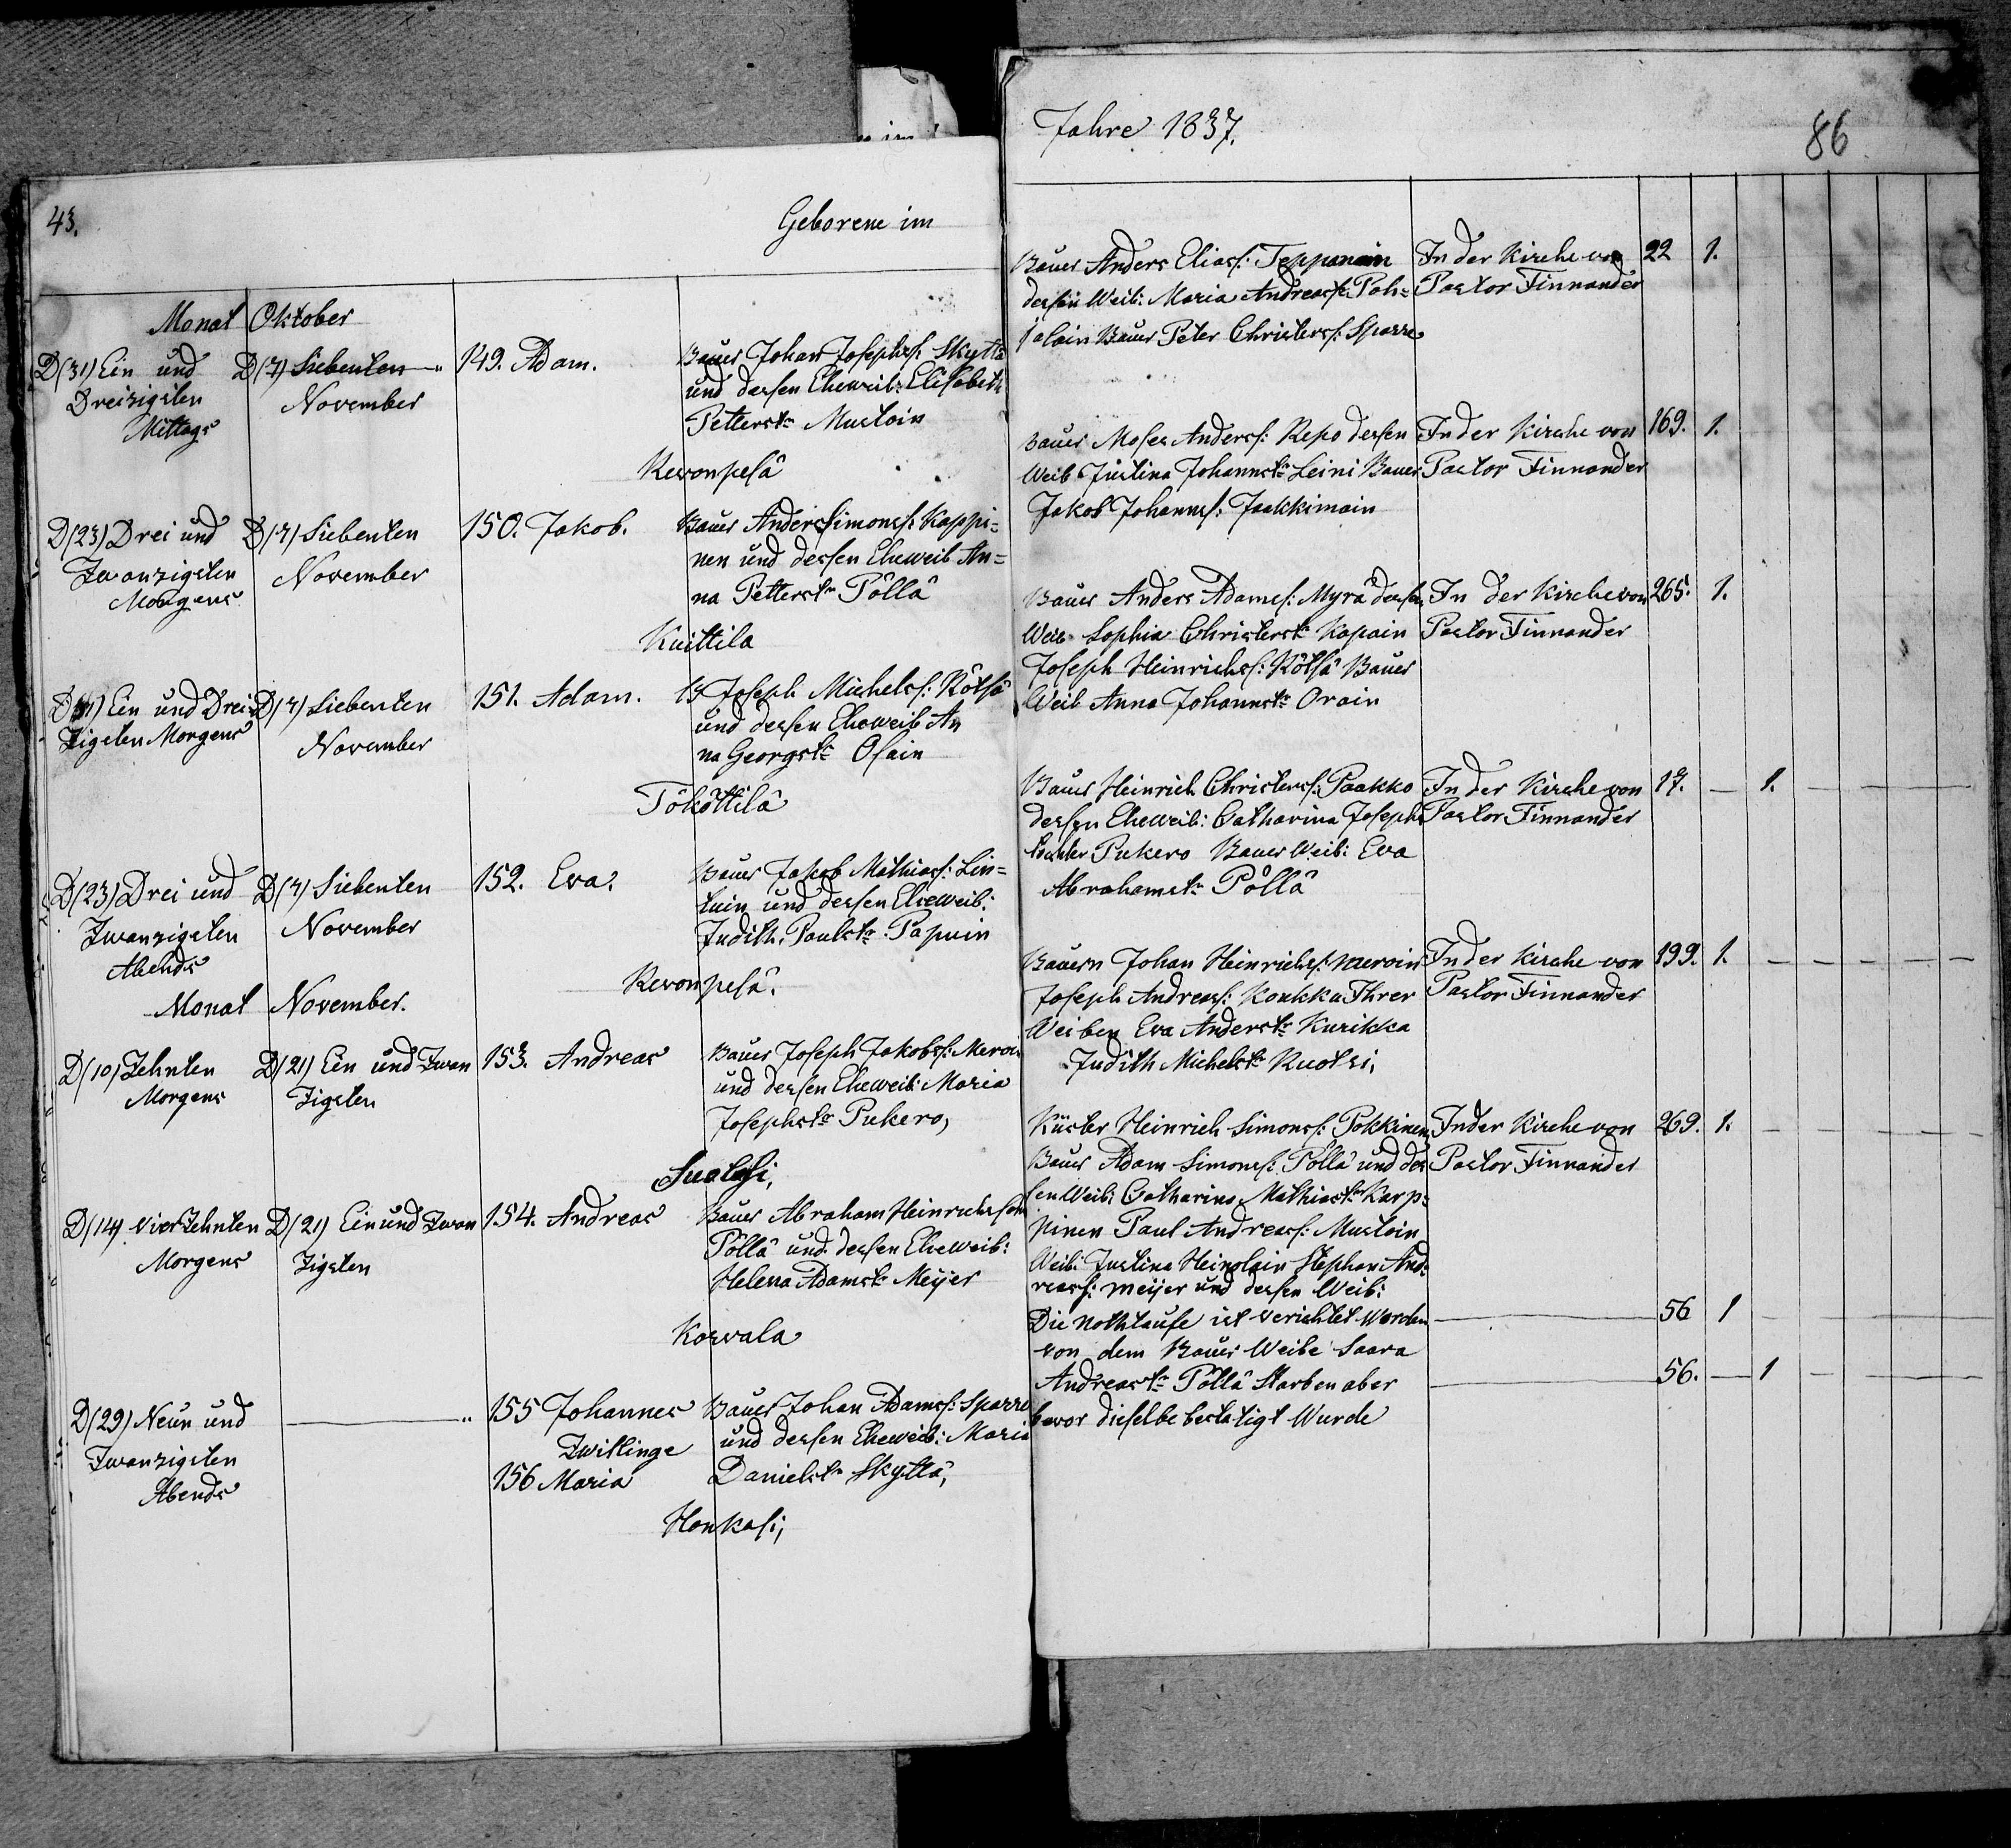 43.
Geborene im
Monat Oktober
D(31) Ein und
Dreizigsten
Mittags
D(7) Siebenten
November
149. Adam.
Bauer Johan Josephs: Skyttä
und dessen Eheweib: Elisabeth
Petterst: Mustoin
Revonpesä
D(23) Drei und
Zwanzigsten
Morgens
D(7) Siebenten
November
150. Jakob.
Bauer Anders Simons: Kappi=
nen und dessen Eheweib An=
na Petterst: Pöllä
Kuittila
D(31) Ein und Drei
Zigsten Morgens
D(7) Siebenten
November
151. Adam.
B Joseph Michels: Rötsä
und dessen Eheweib An
na Georgst: Osain
Tököttilä
D(23) Drei und
Zwanzigsten
Abends
D(7) Siebenten
November
152. Eva.
Bauer Jakob Mathias: Lin=
tuin und dessen Eheweib:
Judith. Paulst: Papuin
Revonpesä.
Monat November.
D(10) Zehnten
Morgens
D(21) Ein und Zwan
Zigsten
153. Andreas
Bauer Joseph Jakobs: Meroin
und dessen Eheweib: Maria
Josephst: Pukero,
D(14) VierZehnten
Morgens
D(21) Ein und Zwan
Zigsten
154. Andreas
Bauer Abraham Heinrichsson
Pöllä und dessen Eheweib:
Helena Adamst: Meijer
Korvala
D(29) Neun und
Zwanzigsten
Abends
155 Johannes
Zwillinge
156 Maria
Bauer Johan Adams: Sparre
und dessen Eheweib: Maria
Danielst: Skyttä,
Honkasi,
Jahre 1837.
86
Bauer Anders Elias: Tepponain
dessen Weib: Maria Andreast: Poh=
jolain Bauer Peter Christers: Sparre
In der Kirche von
Pastor Finnander
22 1.
Bauer Moses Anders: Repo dessen
Weib Justina Johannst: Leini Bauer
Jakob Johanns: Jaakkimain
In der Kirche von
Pastor Finnander
169. 1.
Bauer Anders Adams: Myrä dessen
Weib Sophia Christerst: Kapain
Joseph Heinrichs: Rötsä Bauer
Weib Anna Johannst: Orain
In der Kirche von
Pastor Finnander
265. 1.
Bauer Heinrich Christers: Paakko
dessen Eheweib: Catharina Josephs
tochter Pukero Bauer Weib: Eva
Abrahamst: Pöllä
In der Kirche von
Pastor Finnander
17. — 1.
Bauern Johan Heinrichs: Meroin
Joseph Andreas: Koukku Ihrer
Weiben Eva Anderst: Kurikka
Judith Michelst: Ruotsi,
In der Kirche von
Pastor Finnander
199. 1.
Küster Heinrich Simons: Pokkinen
Bauer Adam Simons: Pöllä und des
sen Weib: Catharina Mathiast: Karp=
pinen Paul Andreas: Mustoin
Weib: Justina Heinolain Stephan And=
reas: Meijer und dessen Weib:
In der Kirche von
Pastor Finnander
269. 1.
Die Nothtaufe ist verichtet Worden
von dem Bauer Weibe Saara
Andreast: Pöllä Starben aber
bevor dieselbe bestatigt Wurde
56 1
56. — 1